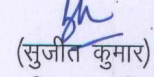 (सुजीत कुमार)